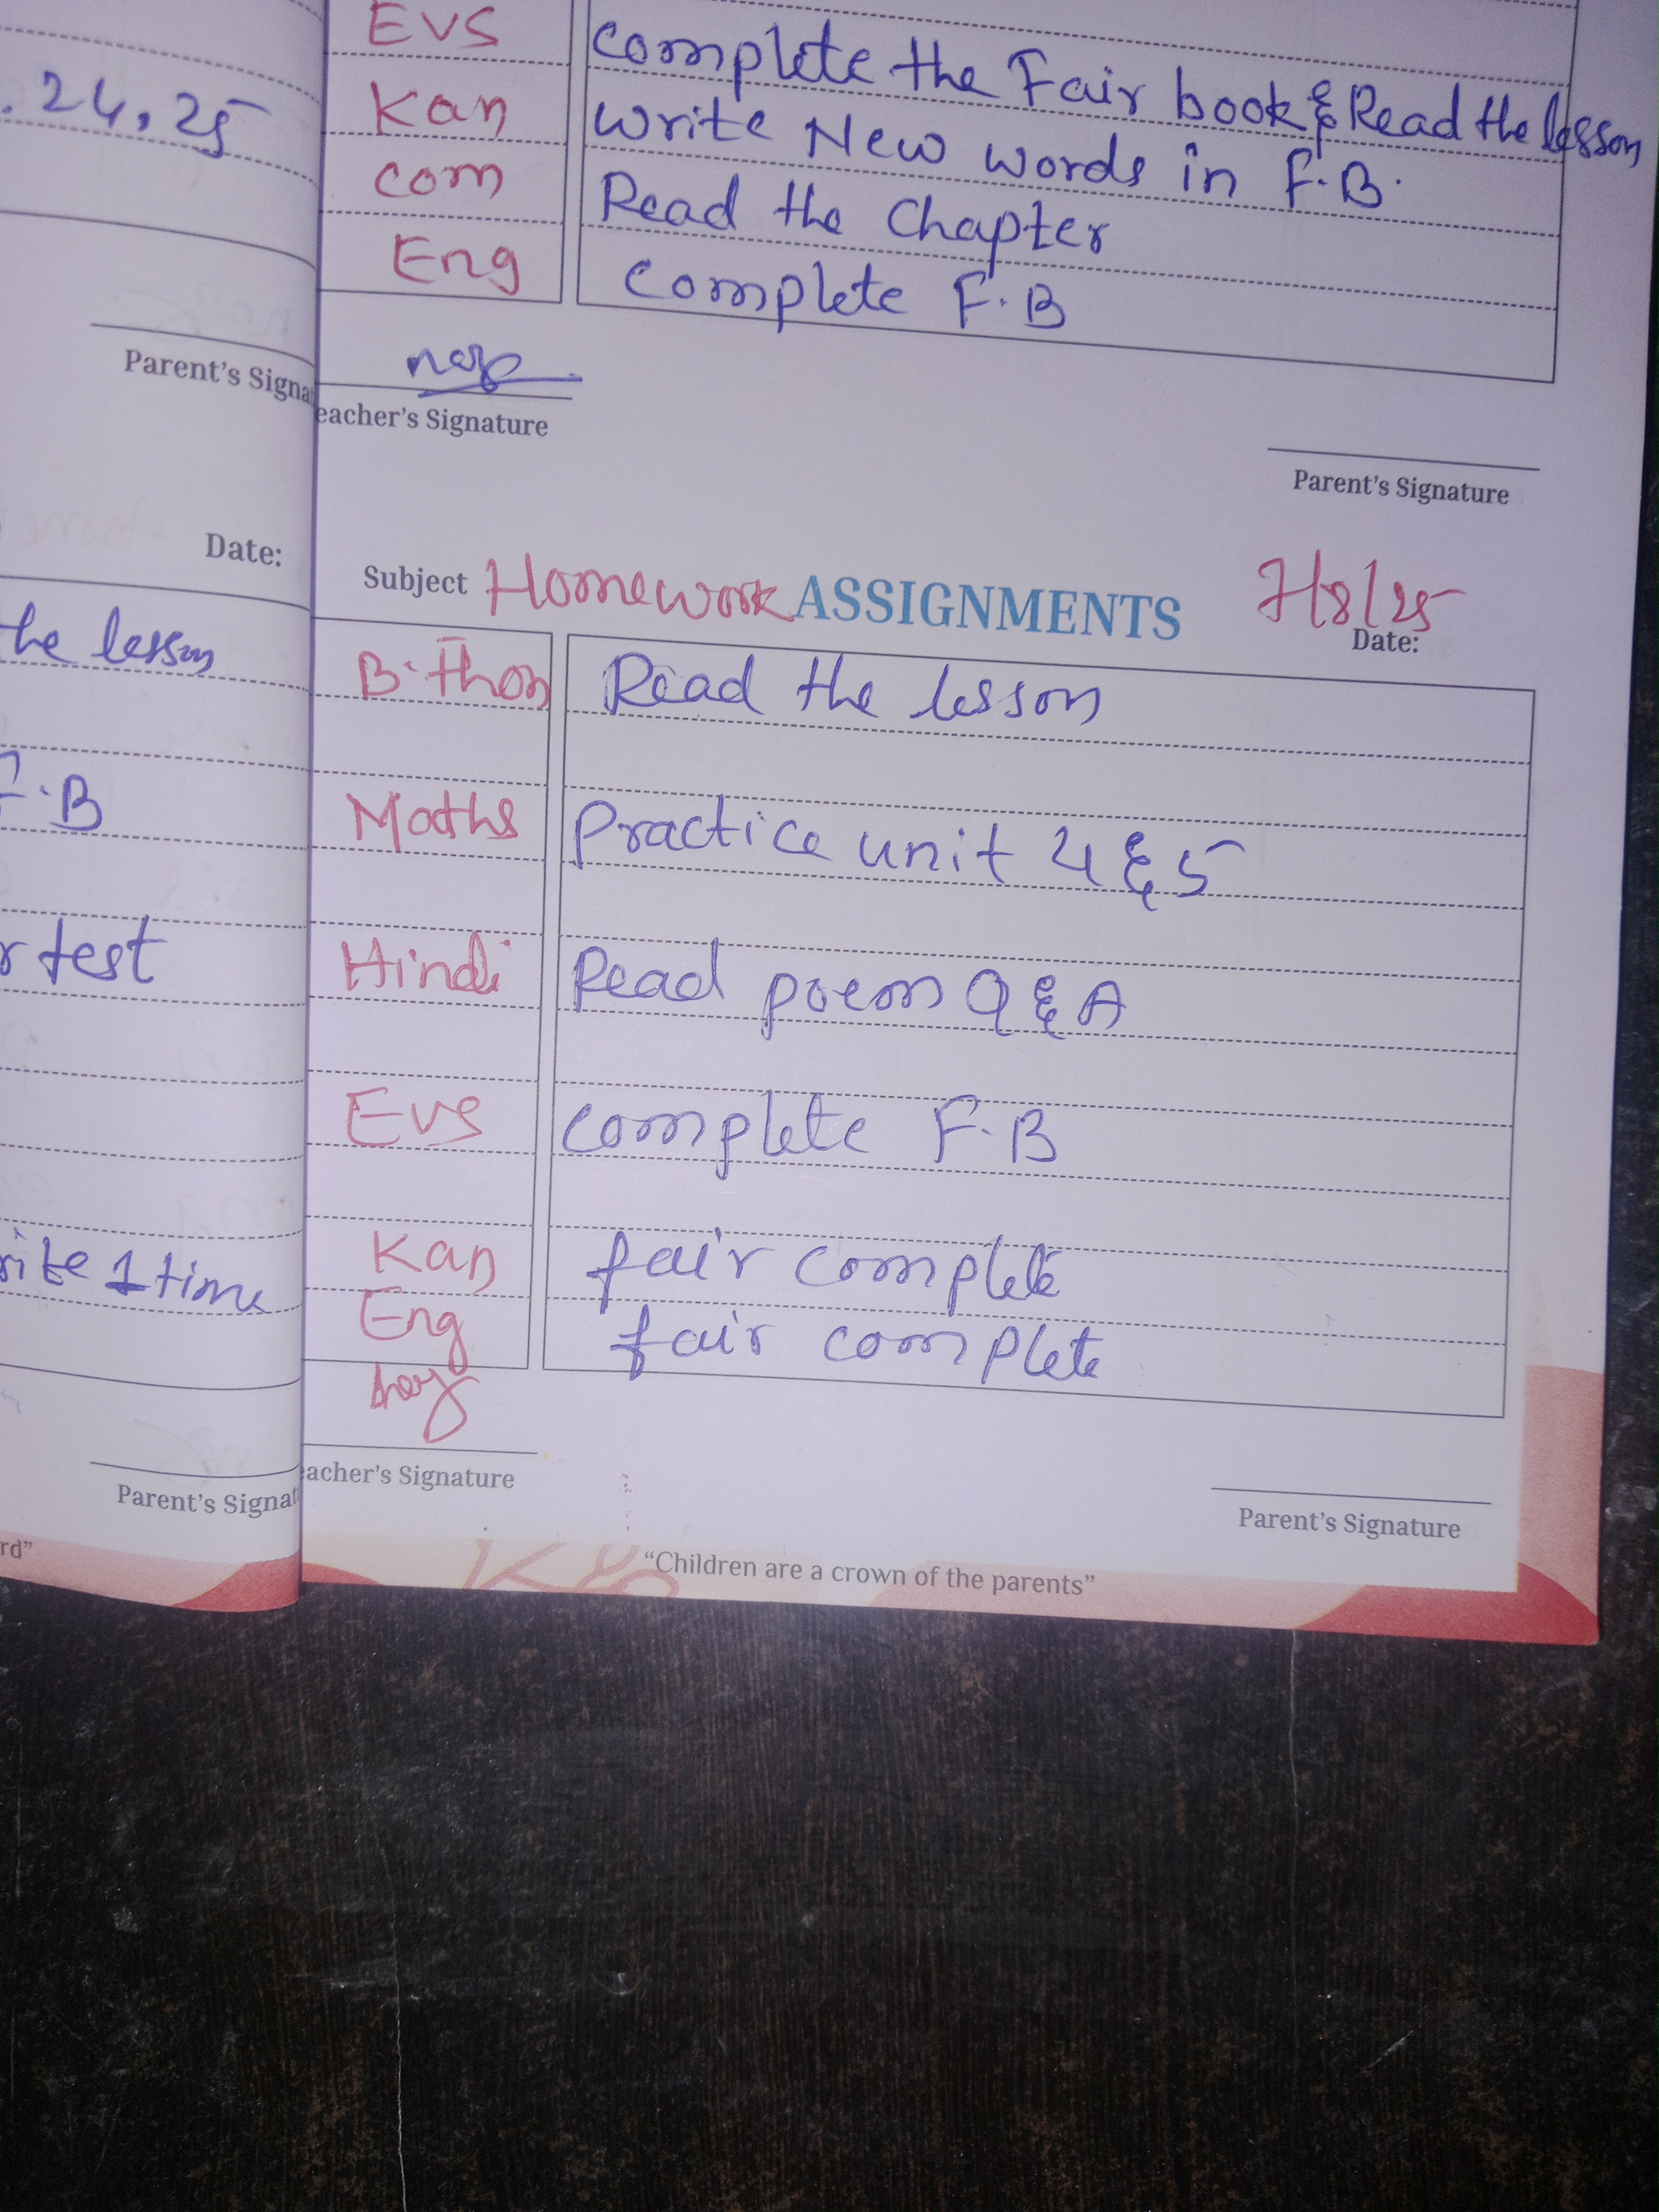 . 24, 25
Parent's Signa
Date:
the lesson
F.B
r test
rite 1 time
Parent's Signat
rd"
EVS complete the Fair book & Read the lesson
Kan write New words in F.B.
com Read the Chapter
Eng complete F.B
eacher's Signature
Parent's Signature
Subject Homework ASSIGNMENTS 7/8/25
Date:
B.Thon Read the lesson
Maths Practice unit 4 & 5
Hindi Read poem Q & A
EVS complete F.B
Kan fair complete
Eng fair complete
eacher's Signature
Parent's Signature
"Children are a crown of the parents"